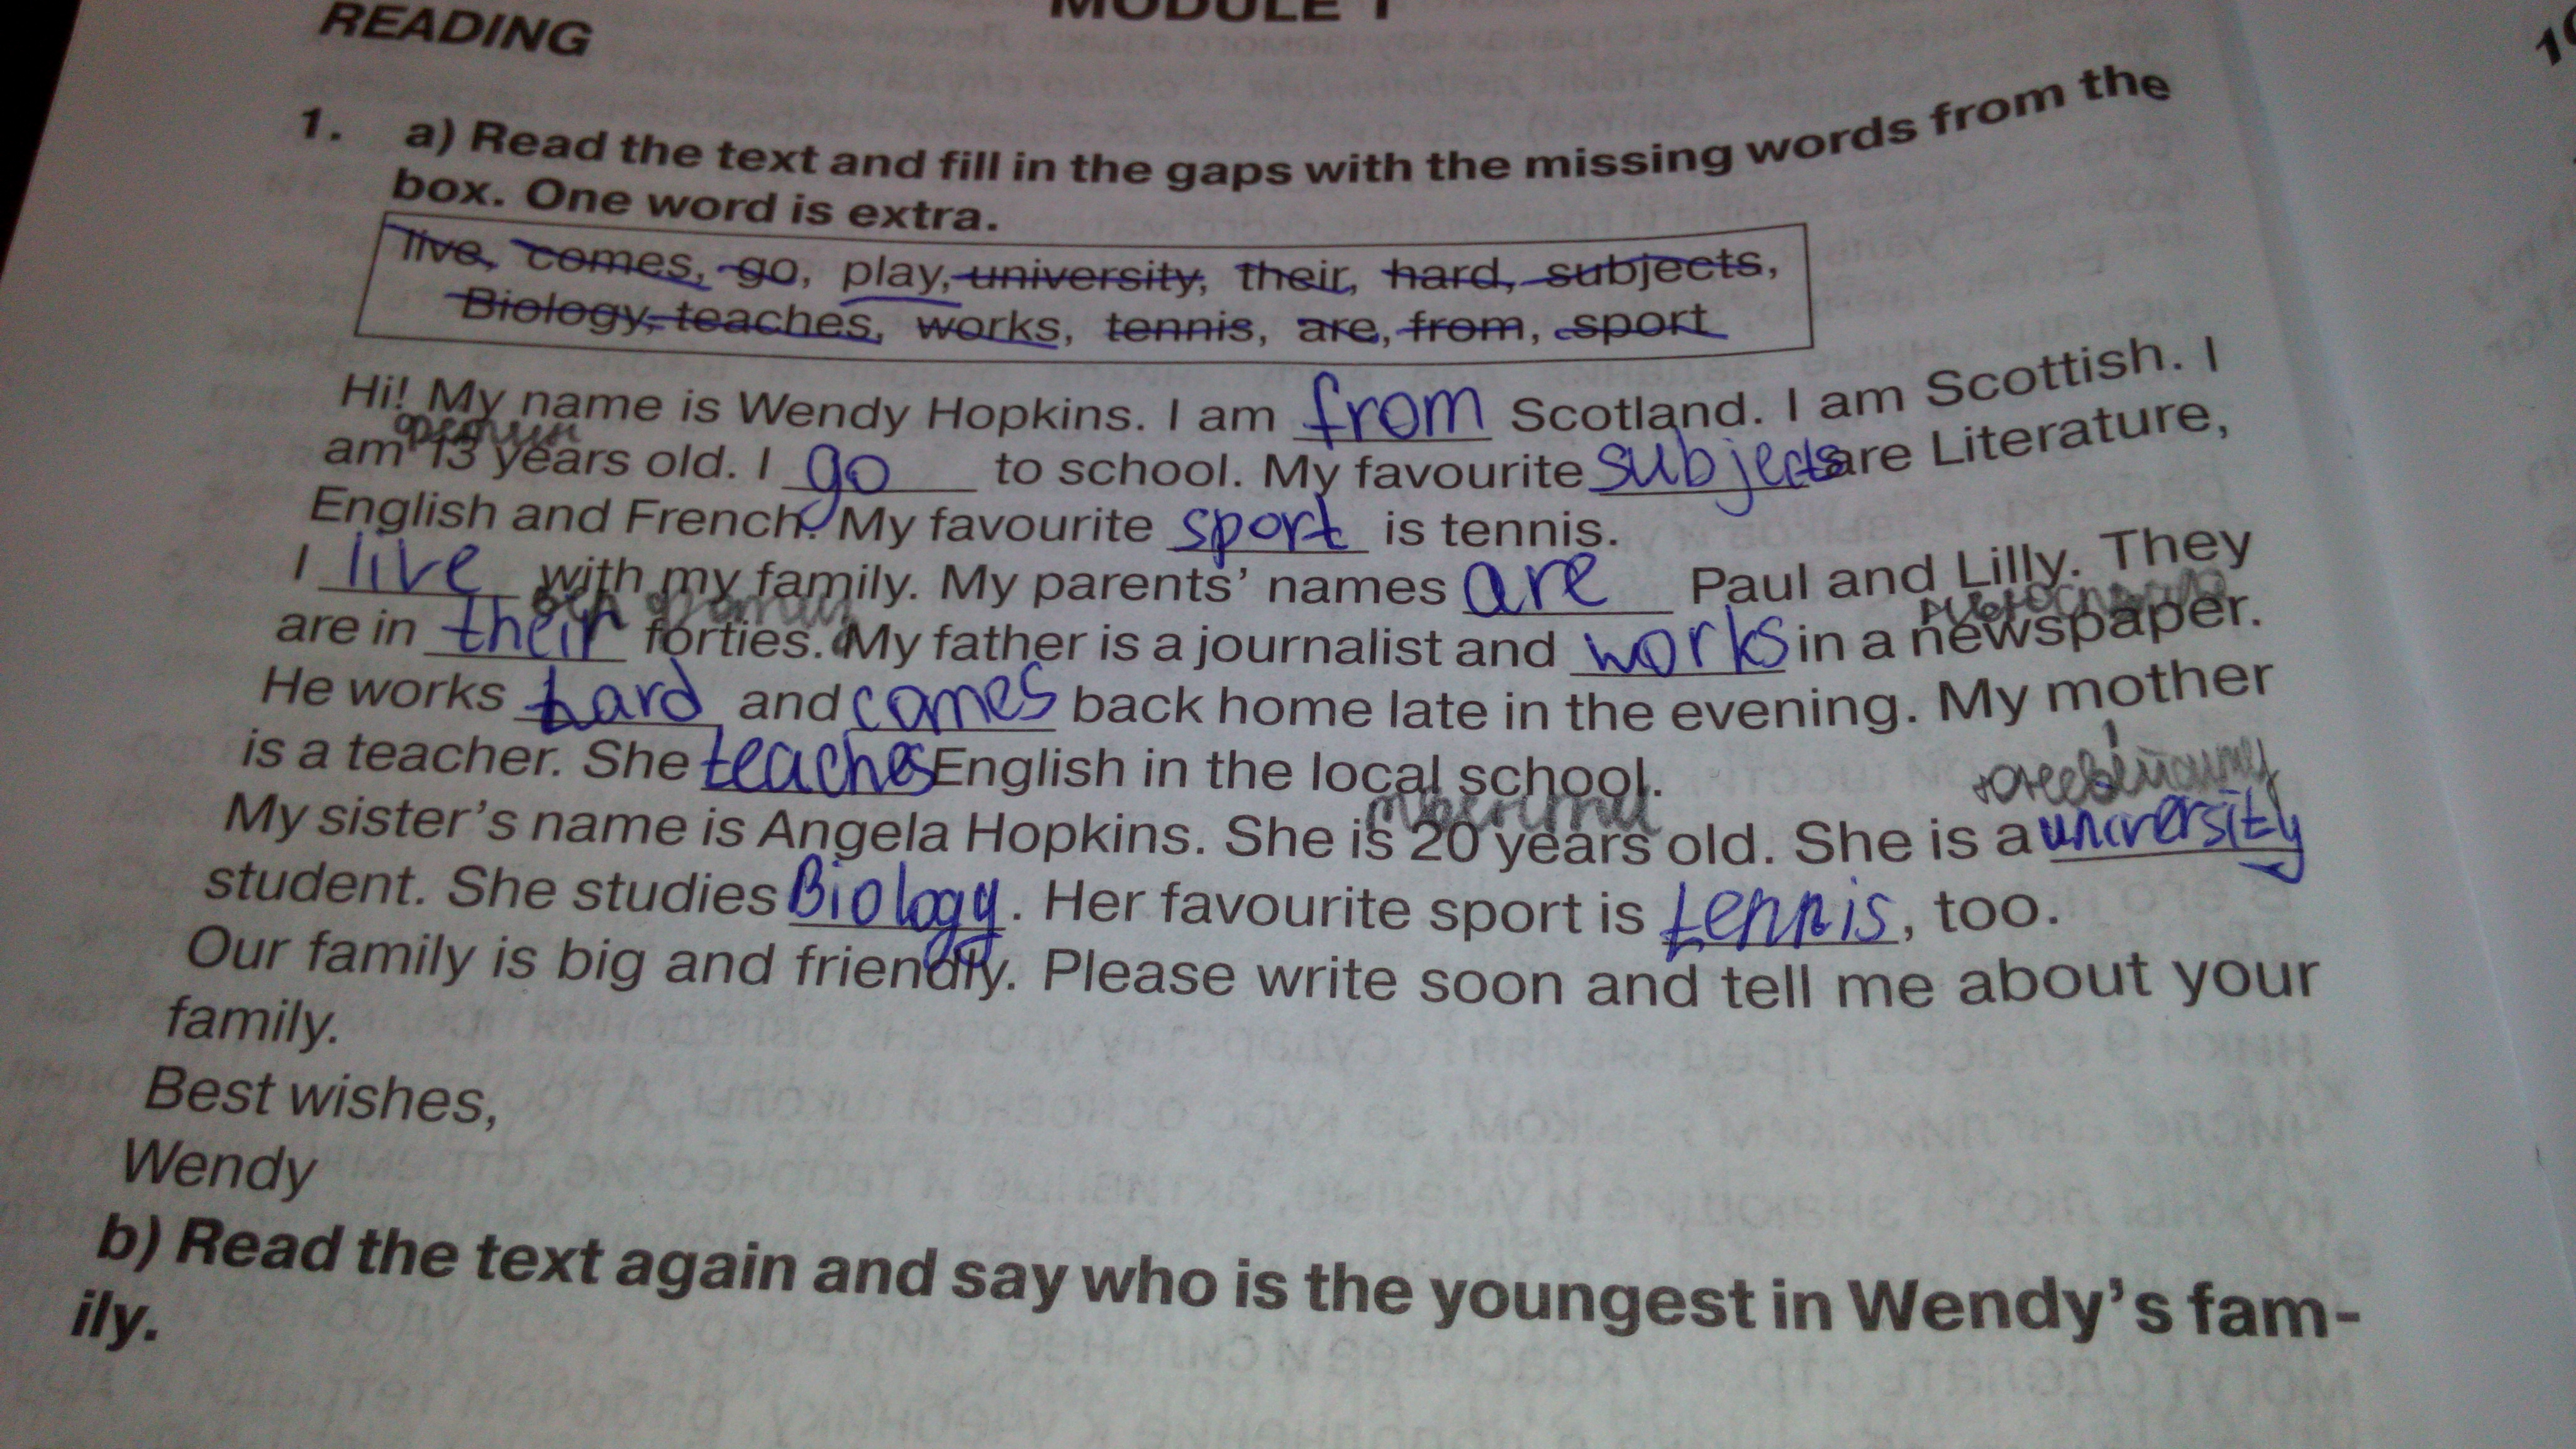 MODULE 1
READING
1. a) Read the text and fill in the gaps with the missing words from the
box. One word is extra.
live, comes, go, play, university, their, hard, subjects,
Biology, teaches, works, tennis, are, from, sport
Hi! My name is Wendy Hopkins. I am from Scotland. I am Scottish. I
am 13 years old. I go to school. My favourite subjects are Literature,
English and French. My favourite sport is tennis.
I live with my family. My parents’ names are Paul and Lilly. They
are in their forties. My father is a journalist and works in a newspaper.
He works hard and comes back home late in the evening. My mother
is a teacher. She teaches English in the local school.
My sister’s name is Angela Hopkins. She is 20 years old. She is a university
student. She studies Biology. Her favourite sport is tennis, too.
Our family is big and friendly. Please write soon and tell me about your
family.
Best wishes,
Wendy
b) Read the text again and say who is the youngest in Wendy’s fam-
ily.